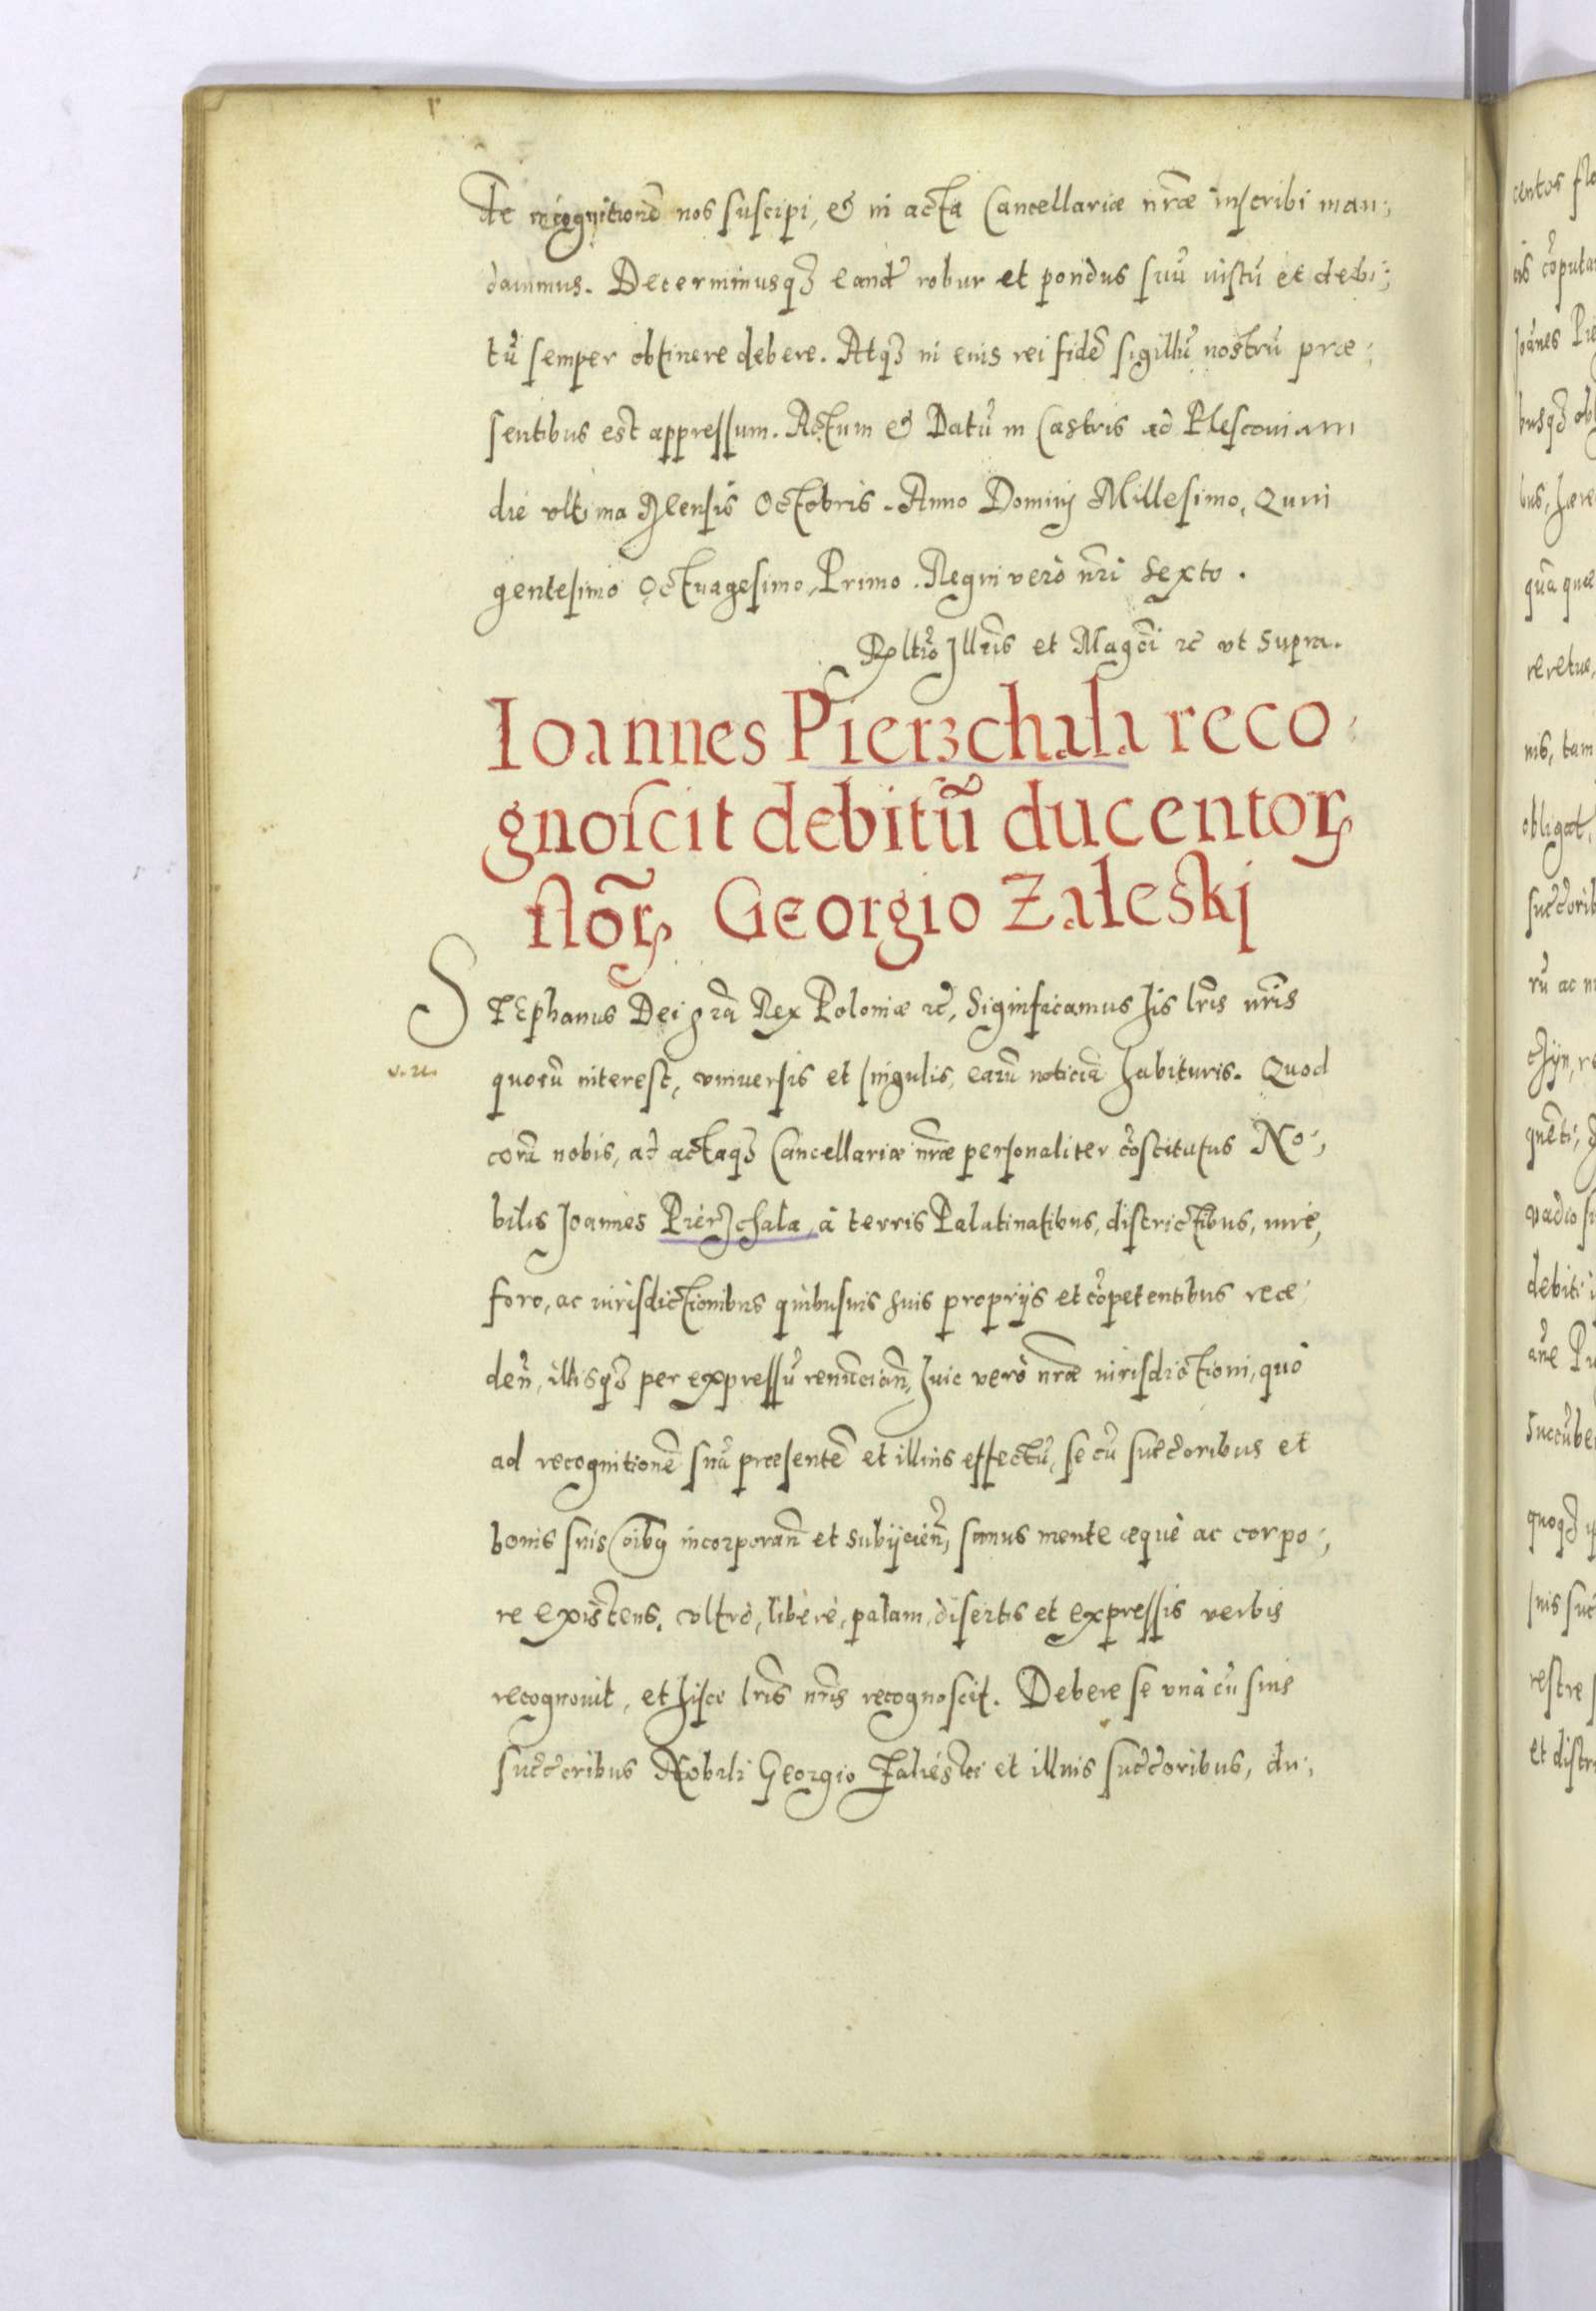 de recognitionē nos suscipi, & in acta Cancellariæ nr̄æ inscribi man:
dauimus. Determinusq₃ eand̃ robur et pondus suũ iustũ et debi:
tũ semper obtinere debere. Atq₃ in euis rei fidē sigillũ nostrũ præ:
sentibus est appressum. Actum & Datũ in Castris ad Plescouiam
die vltima Mensis Octobris. Anno Dominj Millesimo, Quin
gentesimo Octuagesimo, Primo. Regni verò nr̄i Sexto.
Rõltio Jllr̄is et Magc̄i ꝛc̄ vt supra.
Ioannes Pierzchala reco:
gnoscit debitũ ducentoꝝ
floꝝ̃ Georgio Zaleskj
STEphanus Dei gr̄a Rex Poloniæ ꝛc̄, Significamus his lr̄is nr̄is
quorũ interest, vniuersis et singulis, earũ noticiã habituris. Quod
corã nobis, ad actaq₃ Cancellariæ nr̄æ personaliter cõstitutus No:
bilis Joannes Pierzchala, à terris Palatinatibus, districtibus, iure,
foro, ac iurisdictionibus quibusuis suis proprijs et cõpetentibus rece:
den̄, illisq₃ per expressũ renũcian̄, huic verò nr̄æ iurisdictioni, quò
ad recognitionē suã præsentē et illius effectũ, se cũ succ̄oribus et
bonis suis oībꝯ incorporan̄ et subijcien̄, sanus mente æquè ac corpo:
re existens. vltrò, liberè, palam, disertis et expressis verbis
recognouit, et hisce lr̄is nr̄is recognoscit. Debere se vnà cũ suis
succ̄oribus Nobili Georgio Zalieski et illius succ̄oribus, du: